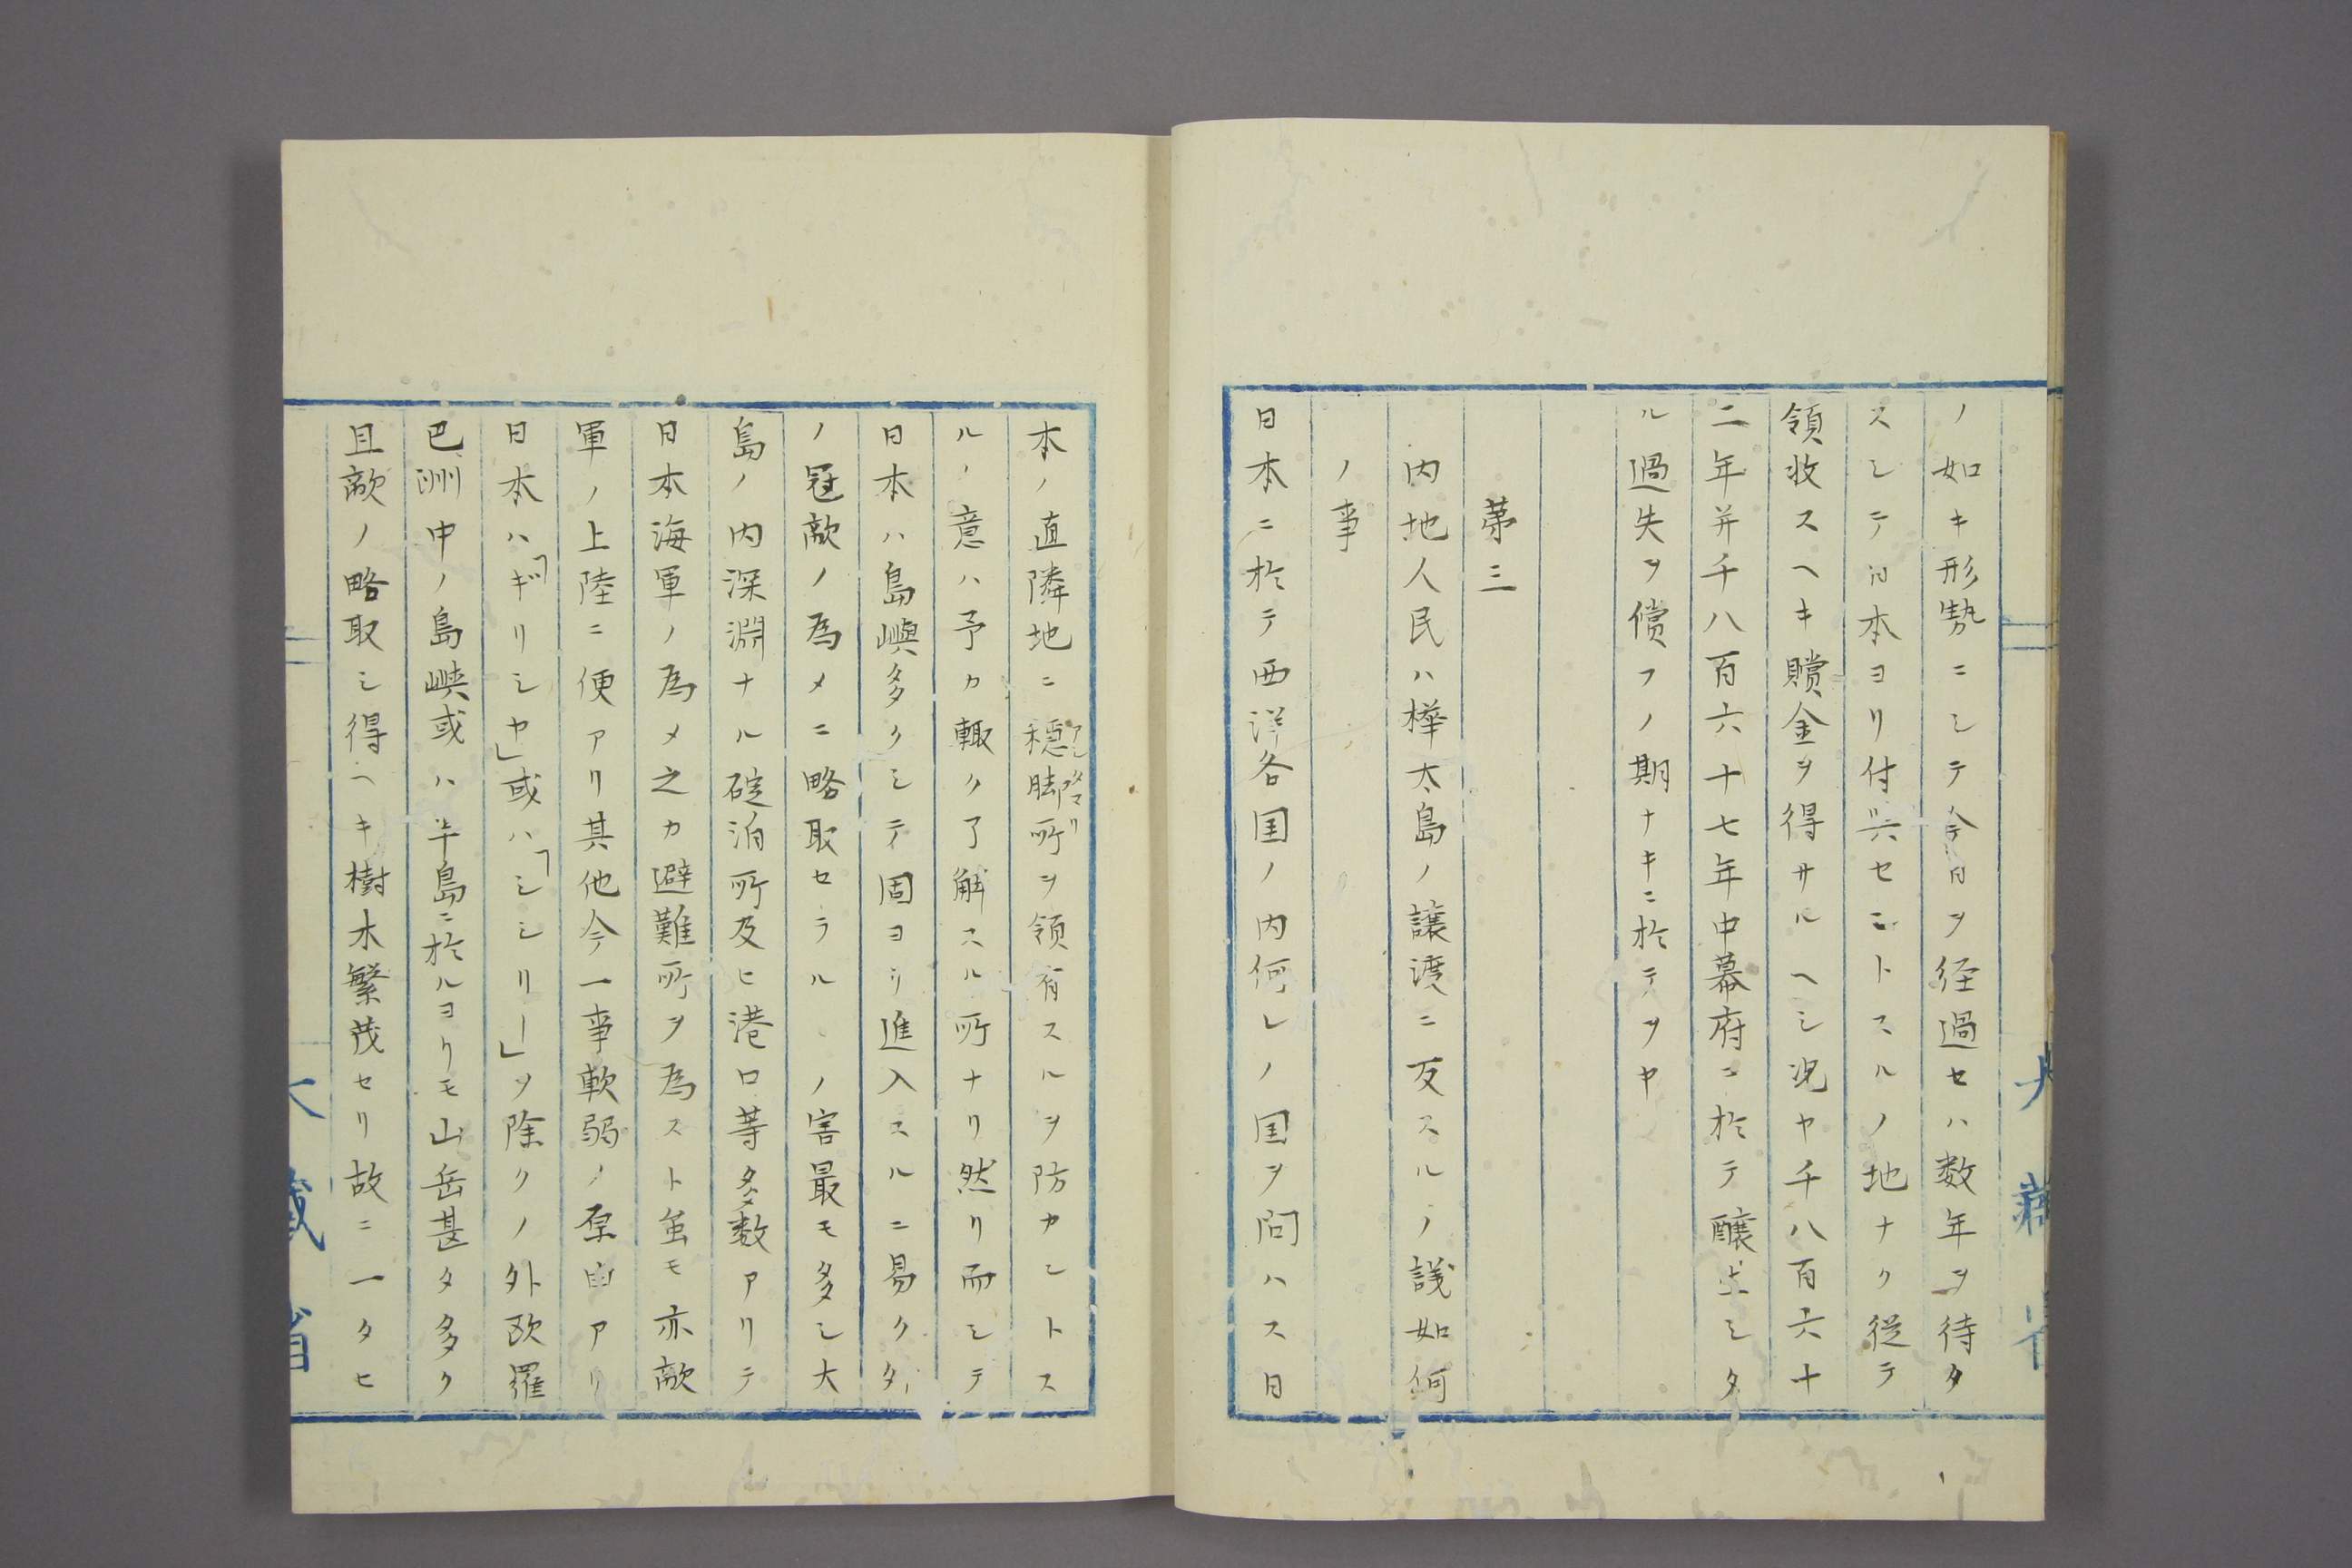 ノ如キ形勢ニシテ今日ヲ経過セハ数年ヲ待タ
スシテ日本ヨリ付与セントスルノ地ナク従テ
領收スヘキ贖金ヲ得サルヘシ況ヤ千八百六十
二年并千八百六十七年中幕府ニ於テ醸生シタ
ル過失ヲ償フノ期ナキニ於テヲヤ
第三
内地人民ハ樺太島ノ譲渡ニ反スルノ議如何
ノ事
日本ニ於テ西洋各国ノ内何レノ国ヲ問ハス日
本ノ直隣地ニ穏脚所ヲ領有スルヲ防カントス
ルノ意ハ予カ輙ク了解スル所ナリ然リ而シテ
日本ハ島嶼多クシテ固ヨリ進入スルニ易ク
ノ冦敵ノ為メニ略取セラルヽノ害最モ多シ大
島ノ内深淵ナル碇泊所及ヒ港口等多数アリテ
日本海軍ノ為メ之カ避難所ヲ為スト虽モ亦敵
軍ノ上陸ニ便アリ其他今一事軟弱ノ原由アリ
日本ハ「ギリシヤ」或ハ「シシリー」ヲ除クノ外欧羅
巴洲中ノ島峡或ハ半島ニ於ルヨリモ山岳甚タ多ク
且敵ノ略取シ得ヘキ樹木繁茂セリ故ニ一タヒ
大藏省